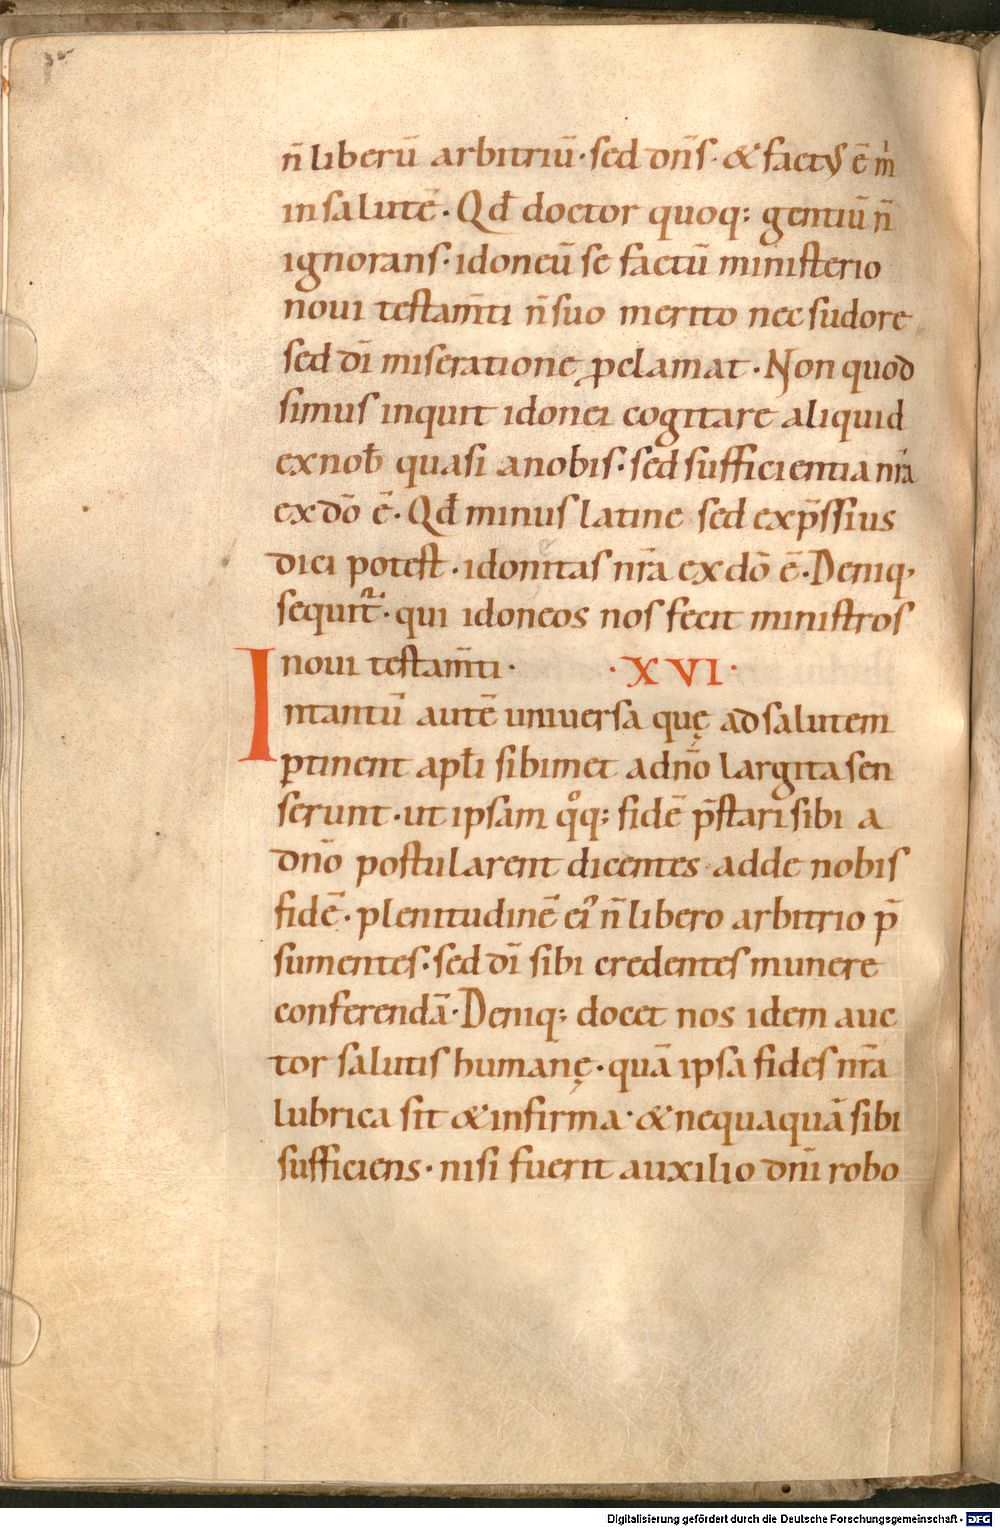 n̄ liberū arbitriū· sed dn̄s· & factꝰ ē m̍
in salutē· Qđ doctor quoq; gentiū n̄
ignorans· idoneū se factū ministerio
noui testam̄ti n̄ suo merito nec sudore
sed dī miseratione ꝓclamat· Non quod
simus inquit idonei cogitare aliquid
ex nob̄ quasi a nobis· sed sufficientia nr̄a
ex dō ē· Qđ minus latine sed exp̄ssius
dici potest· idonitas nr̄a ex dō ē· Deniq,
sequit᷑· qui idoneos nos fecit ministros
noui testam̄ti· ·XVI·
Intantū autē uniuersa quę ad salutem
ꝑtinent apl̄i sibimet a dn̄o largita sen
serunt· ut ipsam qͦq; fidē p̄stari sibi a
dn̄o postularent dicentes adde nobis
fidē· plenitudinē ei᷒ n̄ libero arbitrio p̄
sumentes· sed dī sibi credentes munere
conferendā· Deniq; docet nos idem auc
tor salutis humanę· quā ipsa fides nr̄a
lubrica sit & infirma· & nequaquā sibi
sufficiens· nisi fuerit auxilio dn̄i robo
Digitalisierung gefördert durch die Deutsche Forschungsgemeinschaft - DFG